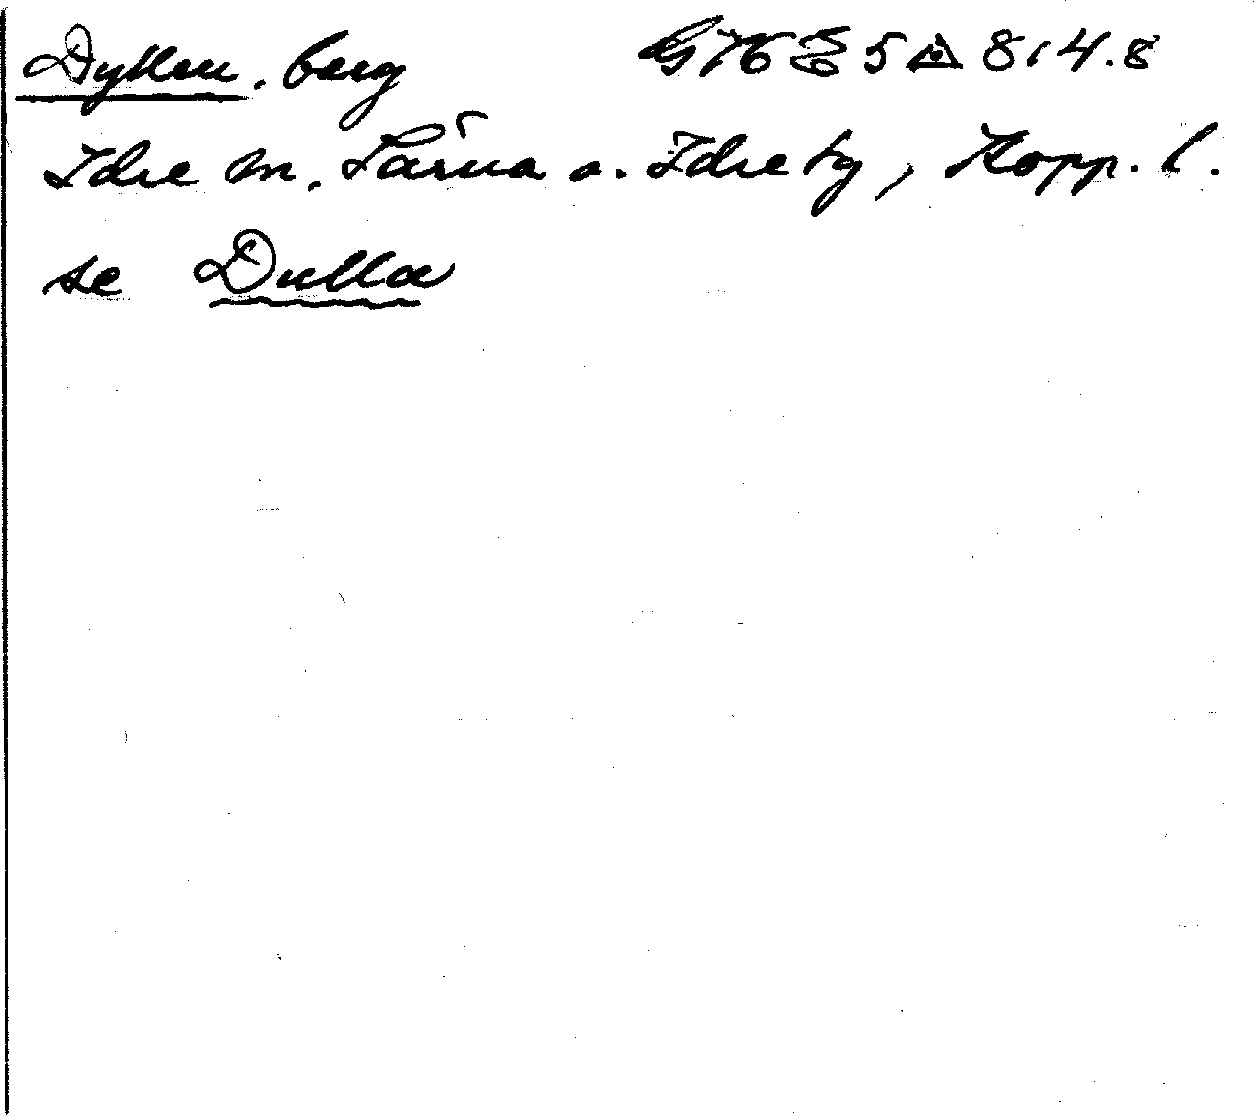 Dyllen, berg 5 △ 814.8
Idre sn, Särna o. Idre tg, Kopp. l.
se Dulla